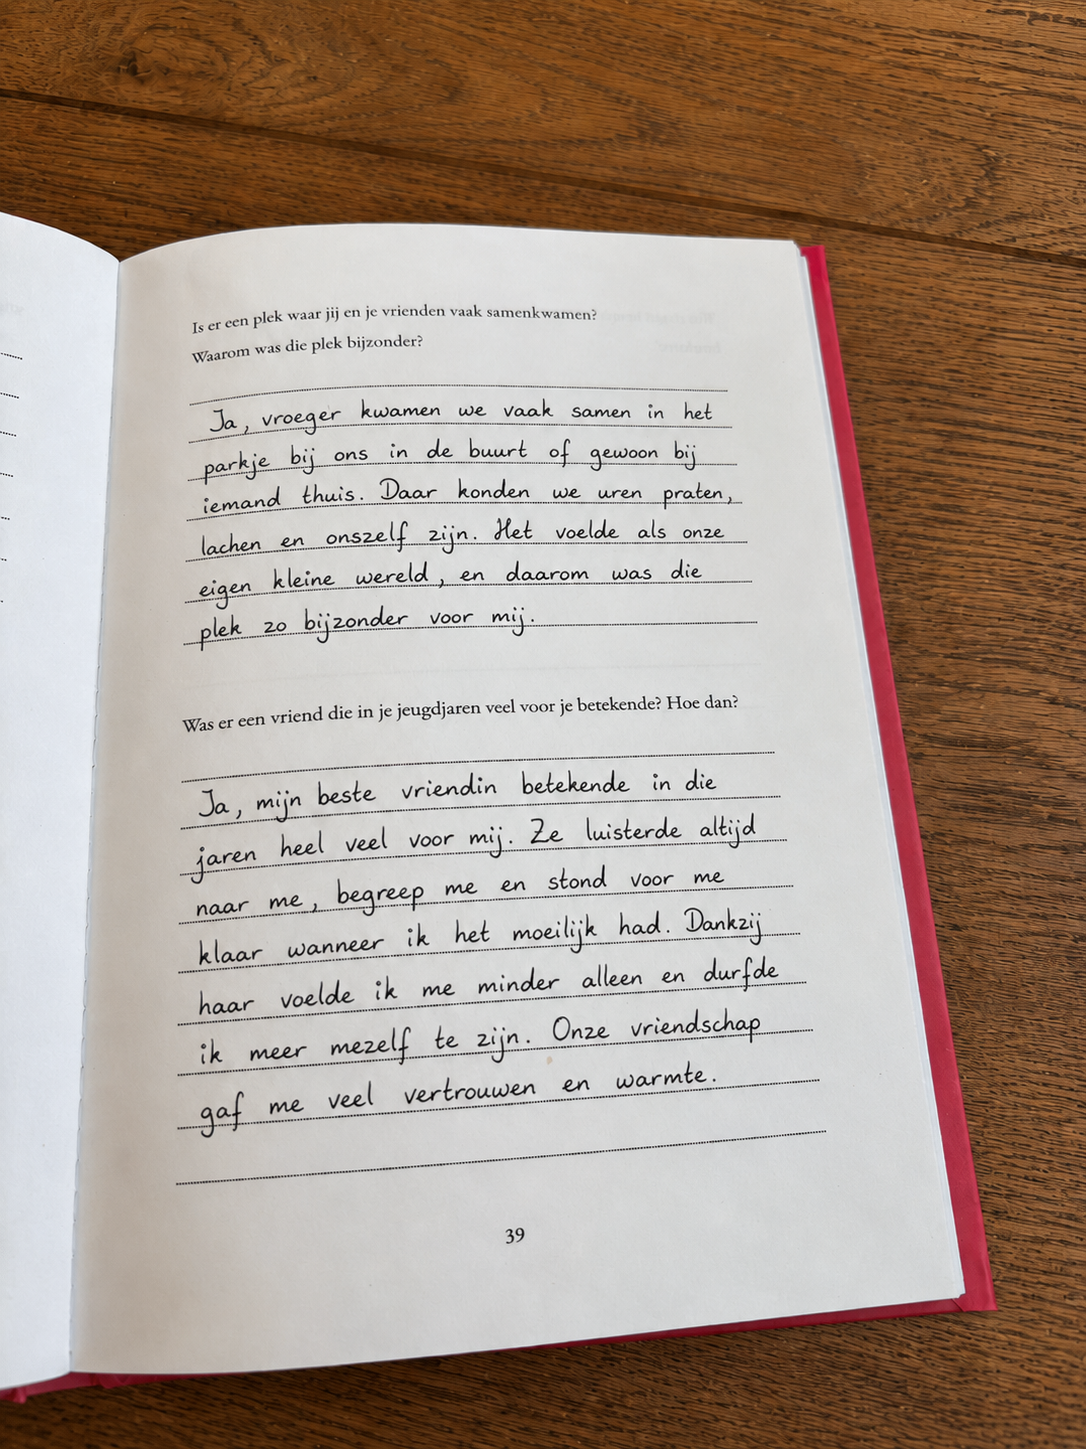 Is er een plek waar jij en je vrienden vaak samenkwamen?
Waarom was die plek bijzonder?
Ja, vroeger kwamen we vaak samen in het
parkje bij ons in de buurt of gewoon bij
iemand thuis. Daar konden we uren praten,
lachen en onszelf zijn. Het voelde als onze
eigen kleine wereld, en daarom was die
plek zo bijzonder voor mij.
Was er een vriend die in je jeugdjaren veel voor je betekende? Hoe dan?
Ja, mijn beste vriendin betekende in die
jaren heel veel voor mij. Ze luisterde altijd
naar me, begreep me en stond voor me
klaar wanneer ik het moeilijk had. Dankzij
haar voelde ik me minder alleen en durfde
ik meer mezelf te zijn. Onze vriendschap
gaf me veel vertrouwen en warmte.
39